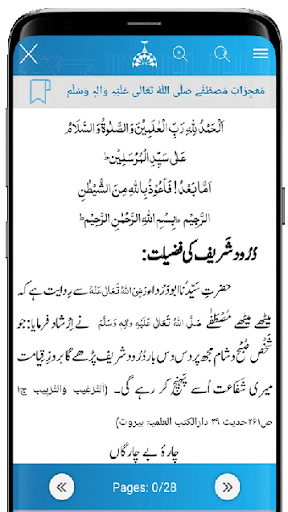 مُعجِزاتِ مُصطَفٰے صَلَّی اللہُ تَعَالٰی عَلَیْہِ وَاٰلِہٖ وَسَلَّم
اَلْحَمْدُ لِلّٰہِ رَبِّ الْعٰلَمِیْنَ وَالصَّلٰوۃُ وَالسَّلَامُ
عَلٰی سَیِّدِ الْمُرْسَلِیْنَ ط
اَمَّا بَعْدُ! فَاَعُوْذُ بِاللہِ مِنَ الشَّیْطٰنِ
الرَّجِیْمِ ط بِسْمِ اللہِ الرَّحْمٰنِ الرَّحِیْمِ ط
دُرُود شریف کی فضیلت:
حضرتِ سیِّدُنا ابو دَرداء رَضِیَ اللہُ تَعَالٰی عَنْہُ سے رِوایت ہے کہ
میٹھے میٹھے مُصْطَفٰے صَلَّی اللہُ تَعَالٰی عَلَیْہِ وَاٰلِہٖ وَسَلَّم نے اِرشاد فرمایا: جو
شخص صبح و شام مجھ پر دس دس بار دُرُود شریف پڑھے گا بروزِ قِیامت
میری شَفاعت اُسے پَہُنچ کر رہے گی۔ (اَلتَّرْغِیب وَالتَّرْہِیب ج۱
ص۲۶۱ حدیث ۲۹ دارالکتب العلمیۃ بیروت)
چارۂ بے چارگاں
Pages: 0/28